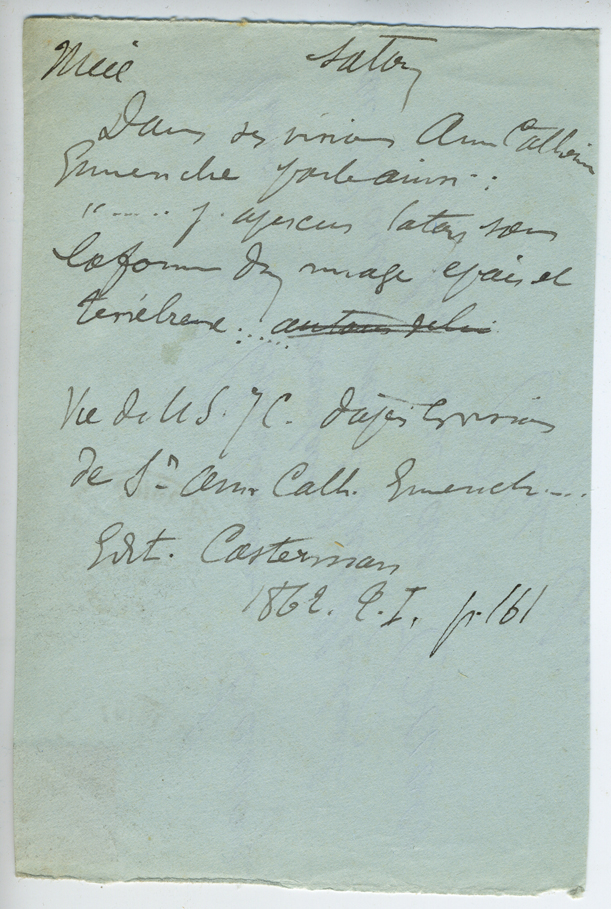 Satan
Dans ses visions Ann Catherine
Emmeriche parle ainsi :
"..... j'aperçus Satan sous
la forme d'un nuage épais et
ténébreux ..... autour de lui
Vie de N S. J C. d'après les visions
de Sr Ann Cath. Emmerich...
Edit. Casterman
1862. T. I. p. 161